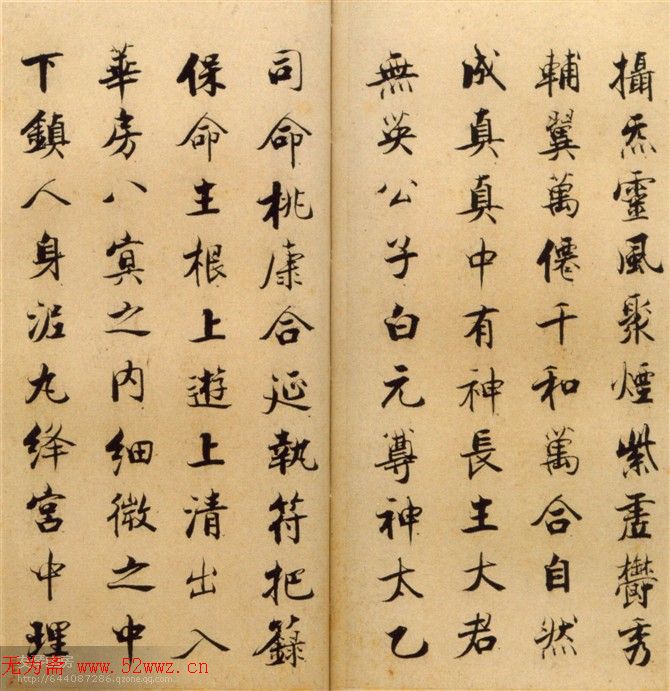 攝炁靈風聚煙紫虛鬱秀
輔翼萬僊千和萬合自然
成真真中有神長生大君
無英公子白元尊神太乙
司命桃康合延執符把籙
保命生根上遊上清出入
華房八寘之内細微之中
下鎮人身泥丸絳宮中理
无为斋 www.52wwz.cn
http://644087286.qzone.qq.com